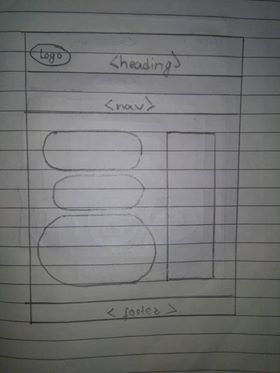 Logo
<heading>
<nav>
<footer>